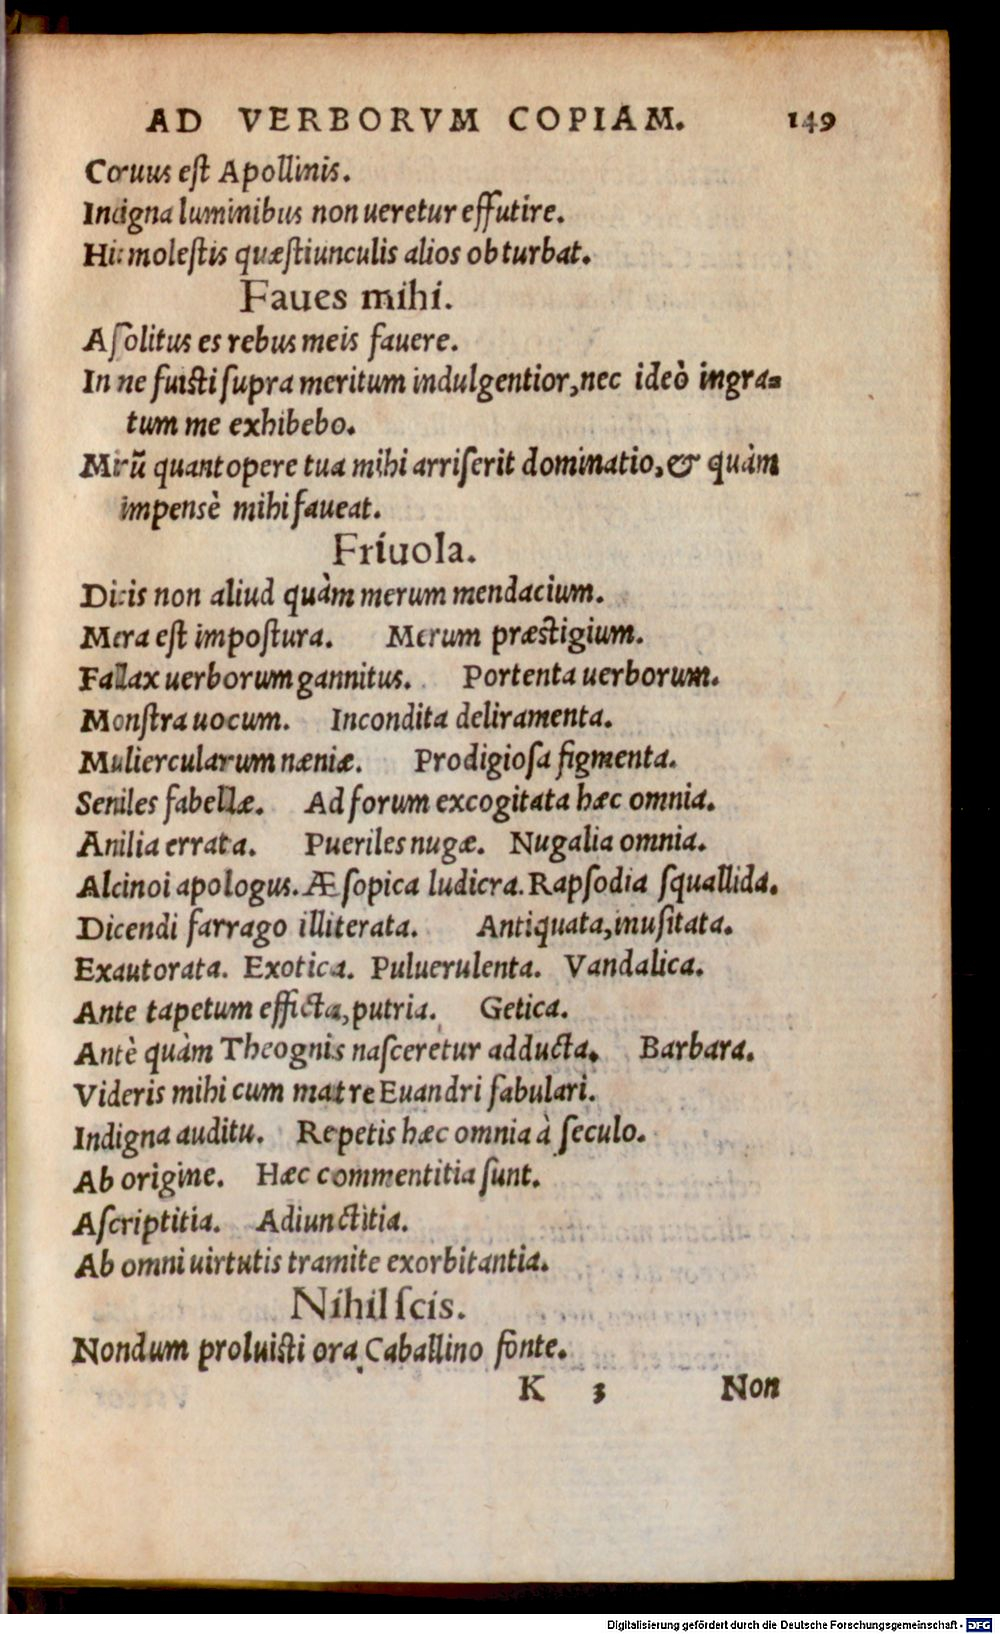 AD VERBORVM COPIAM. 149
Coruus eſt Apollinis.
Indigna luminibus non ueretur effutire.
Hic moleſtis quæſtiunculis alios obturbat.
Faues mihi.
Aſſolitus es rebus meis fauere.
In me fuiſti ſupra meritum indulgentior, nec ideò ingra-
tum me exhibebo.
Mirū quantopere tua mihi arriſerit dominatio, & quàm
impensè mihi faueat.
Friuola.
Dicis non aliud quàm merum mendacium.
Mera eſt impoſtura. Merum præſtigium.
Fallax uerborum gannitus. Portenta uerborum.
Monſtra uocum. Incondita deliramenta.
Muliercularum næniæ. Prodigioſa figmenta.
Seniles fabellæ. Ad forum excogitata hæc omnia.
Anilia errata. Pueriles nugæ. Nugalia omnia.
Alcinoi apologus. Æſopica ludicra. Rapſodia ſquallida.
Dicendi farrago illiterata. Antiquata, inuſitata.
Exautorata. Exotica. Puluerulenta. Vandalica.
Ante tapetum efficta, putria. Getica.
Antè quàm Theognis naſceretur adducta. Barbara.
Videris mihi cum matre Euandri fabulari.
Indigna auditu. Repetis hæc omnia à ſeculo.
Ab origine. Hæc commentitia ſunt.
Aſcriptitia. Adiunctitia.
Ab omni uirtutis tramite exorbitantia.
Nihil ſcis.
Nondum proluiſti ora Caballino fonte.
K 3 Non
Digitalisierung gefördert durch die Deutsche Forschungsgemeinschaft - DFG